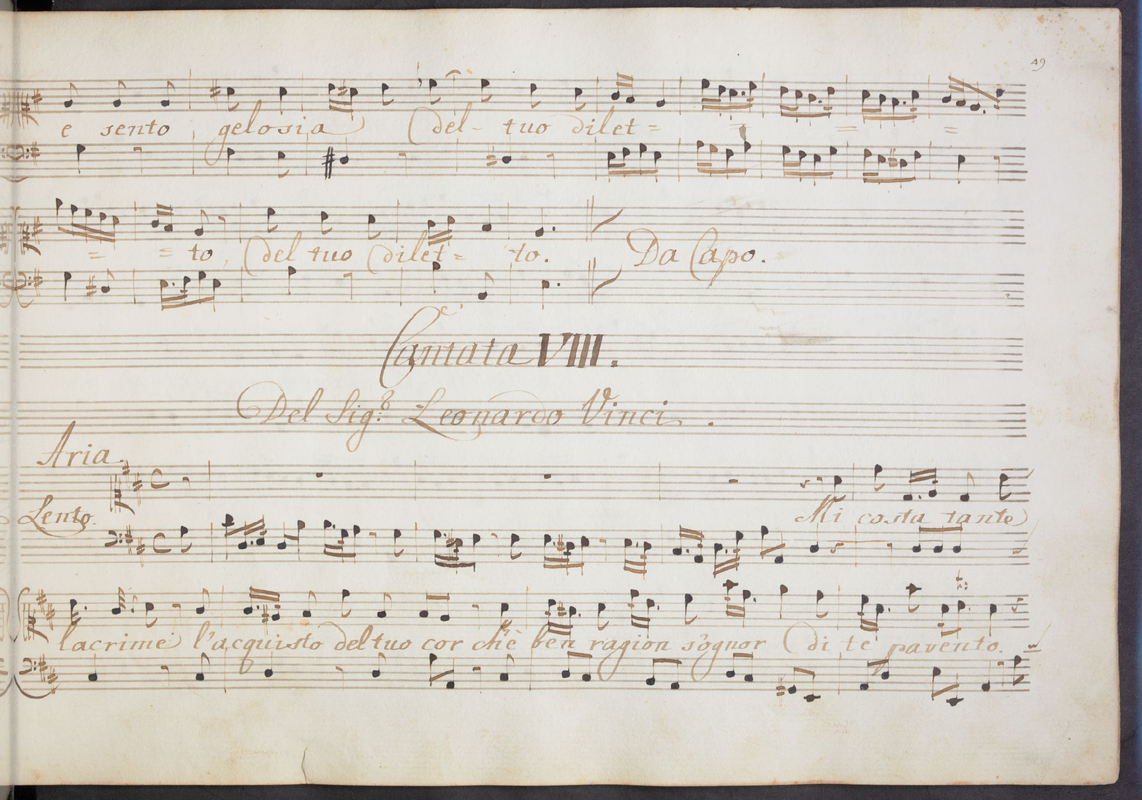 49
e sento gelosia del- tuo dilet = = =
= = to, del tuo dilet = to. Da Capo.
Cantata VIII.
Del Sigr. Leonardo Vinci.
Aria.
Lento.
Mi costa tante
lacrime l'acquisto del tuo cor ch'è ben ragion s'ognor di te pavento.